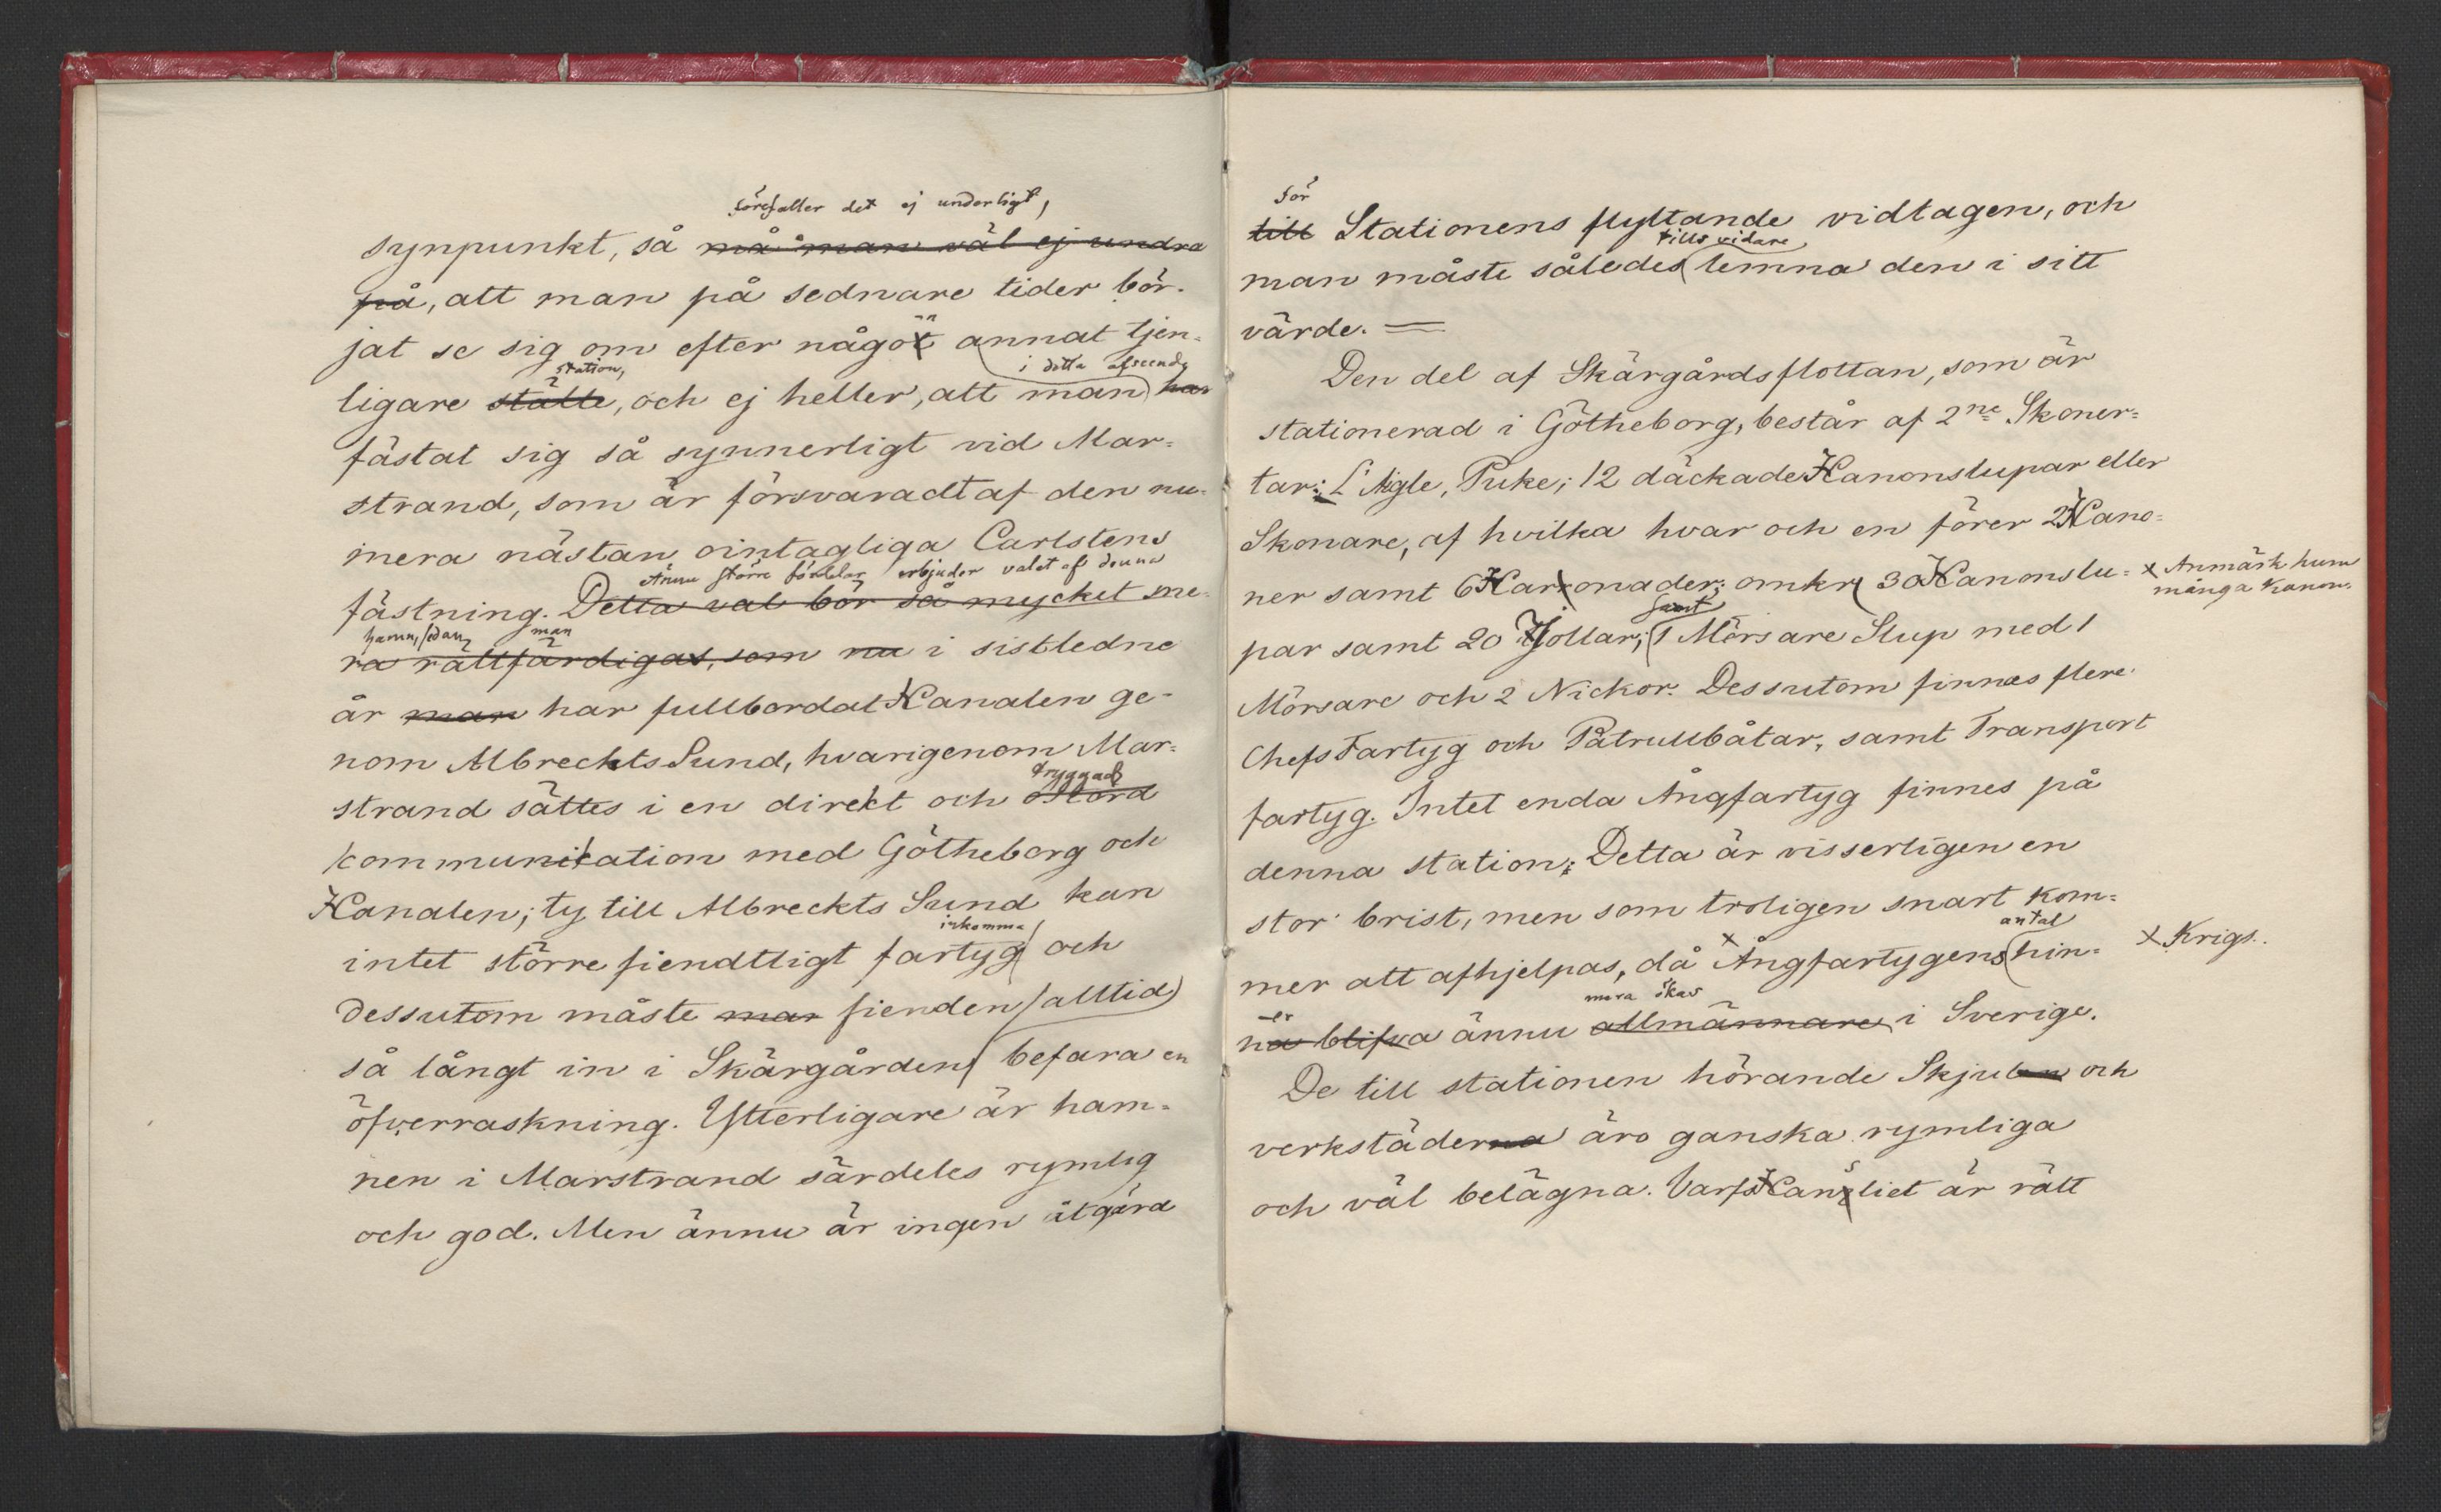 förefaller det ej underligt,
synpunkt, så må man väl ej undra
på, att man på sednare tider bör-
jat se sig om efter något annat tjen-
station, i detta afseende
ligare ställe, och ej heller, att man har
fästat sig så synnerligt vid Mar-
strand, som är försvaradt af den nu-
mera nästan ointagliga Carlstens
Ännu större fördelar erbjuder valet af denna
fästning. Detta val bör så mycket me-
hamn, sedan man
ra rättfärdigas, som nu i sistledne
år man har fullbordat Kanalen ge-
nom Albrechts Sund, hvarigenom Mar-
tryggad
strand sättes i en direkt och ostörd
kommunikation med Götheborg och
Kanalen; ty till Albreckts Sund kan
inkomma
intet större fiendtligt fartyg och
dessutom måste man fienden alltid
så långt in i Skärgården befara en
öfverraskning. Ytterligare är ham-
nen i Marstrand särdeles rymlig
och god. Men ännu är ingen åtgärd
för
till Stationens flyttande vidtagen, och
tills vidare
man måste således lemna den i sitt
värde. =
Den del af Skärgårdsflottan, som är
stationerad i Götheborg, består af 2ne Skoner-
tar: L'Aigle, Puke; 12 däckade Kanonslupar eller
Skonare, af hvilka hvar och en förer 2 Kano-
ner samt 6 Karronader; omkr 30 Kanonslu- x Anmärk huru
många Kanon.
samt
par samt 20 Jollar; 1 Mörsare Slup med 1
Mörsare och 2 Nickor. Dessutom finnas flere
Chefs Fartyg och Patrullbåtar, samt Transport
fartyg. Intet enda Ångfartyg finnes på
denna station; Detta är visserligen en
stor brist, men som troligen snart kom-
antal
mer att afhjelpas, då x Ångfartygens hin- x Krigs.
er mera ökas
na blifva ännu allmännare i Sverige.
De till stationen hörande Skjulen och
verkstäderna äro ganska rymliga
och väl belägna. Varfs Kansliet är rätt